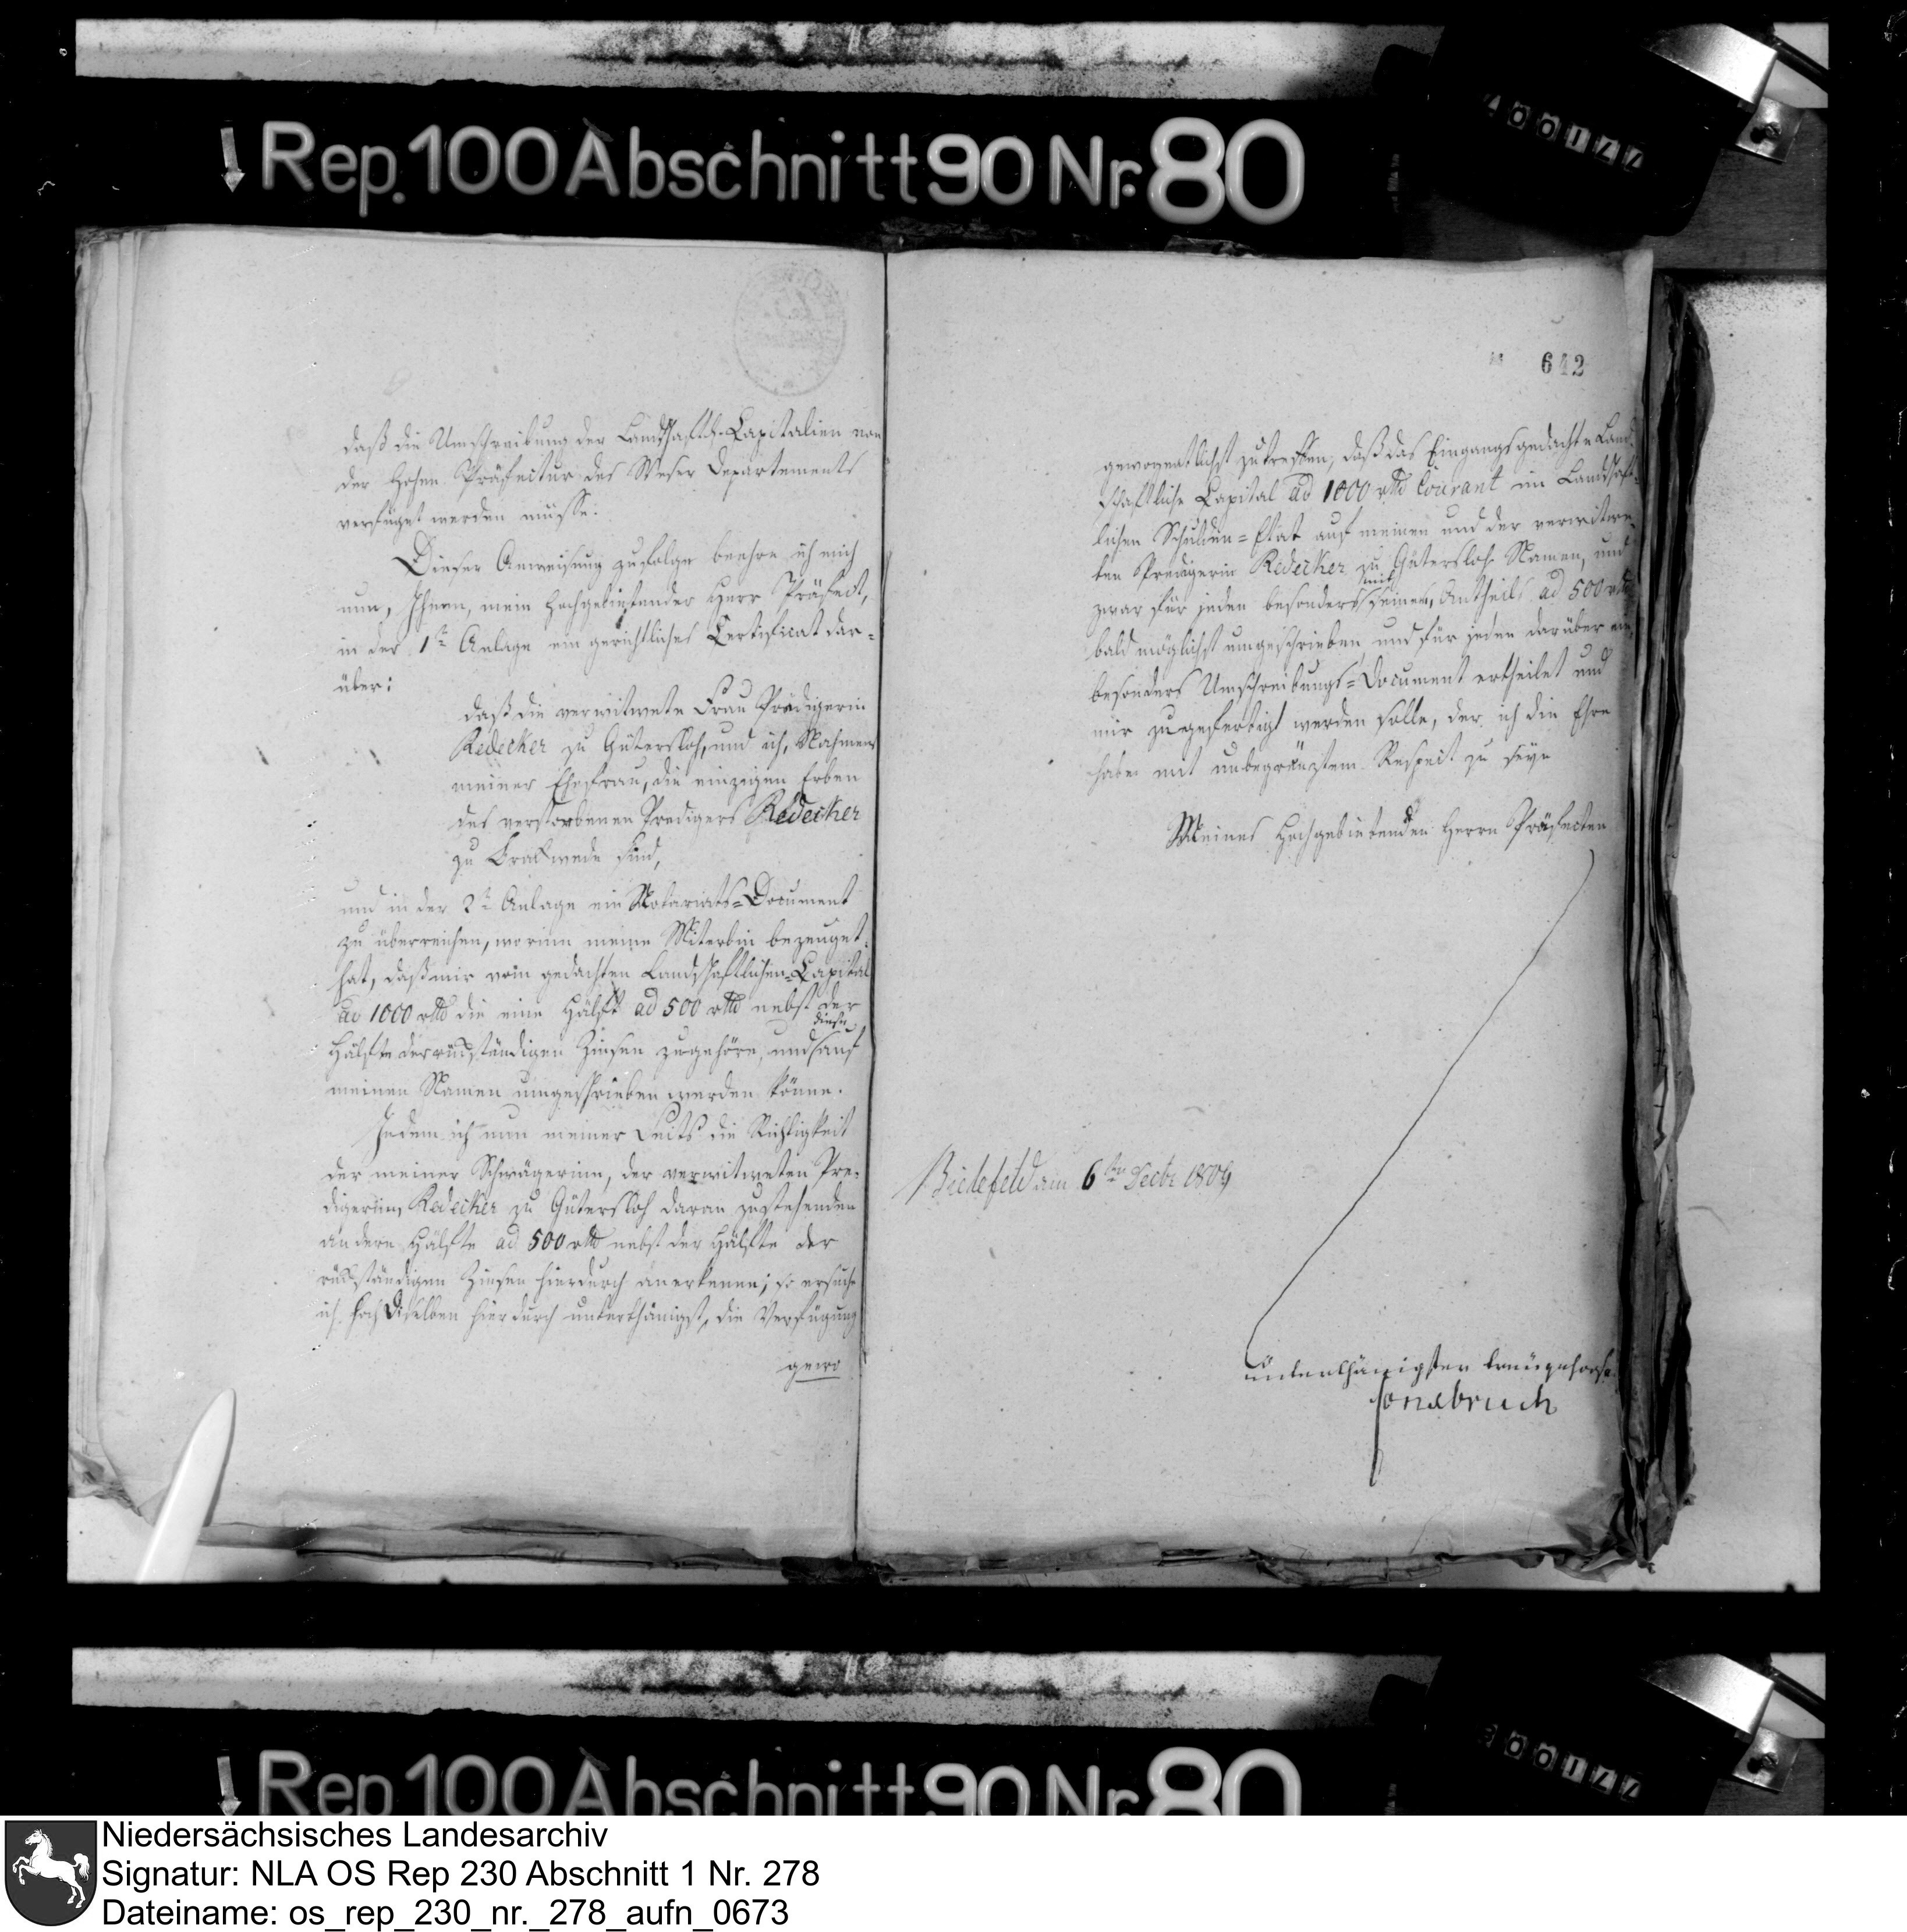 Rep. 100 Abschnitt 90 Nr. 80
642
daß die Umschreibung der Landschaftl. Capitalien von
der Hohen Präfectur des Weser Departements
verfüget werden müsse.
Dieser Anweisung zufolge beehre ich mich
nun, Ihnen, mein Hochgebietender Herr Präfect,
in der 1ten Anlage ein gerichtliches Certificat dar=
über:
daß die verwitwete Frau Predigerin
Redecker zu Gütersloh, und ich, Nahmens
meiner Ehefrau, die einzigen Erben
des verstorbenen Predigers Redecker
zu Brackwede sind,
und in der 2ten Anlage ein Notariats=Document
zu überreichen, worinn meine Miterbin bezeuget
hat, daß mir vom gedachten Landschaftlichen=Capital
ad 1000 rthl die eine Hälfte ad 500 rthl nebst der
Hälfte der rückständigen Zinsen zugehöre, und diese auf
meinen Namen umgeschrieben werden könne.
Indem ich nun meiner Seits die Richtigkeit
der meiner Schwägerinn, der verwitweten Pre=
digerinn Redecker zu Gütersloh daran zustehenden
andern Hälfte ad 500 rthl nebst der Hälfte der
rückständigen Zinsen hierdurch anerkenne; so ersuche
ich Hochdieselben hierdurch unterthänigst, die Verfügung
gewo
gewogentlichst zu treffen, daß das Eingangs gedachte Land=
schaftliche Capital ad 1000 rthl Courant im Landschaft=
lichen Schulden=Etat auf meinen und der verwitwe=
ten Predigerin Redecker zu Gütersloh Namen, und
zwar für jeden besonders mit seinem Antheil ad 500 rthl
bald möglichst umgeschrieben, und für jeden darüber ein
besonders Umschreibungs=Document ertheilet und
mir zugefertigt werden solle, der ich die Ehre
habe mit unbegränztem Respect zu seyn
Meines Hochgebietenden Herrn Präfecten
Bielefeld am 6ten Decbr 1809
unterthänigster treugehors.
Consbruch
Rep 100 Abschnitt 90 Nr. 80
Niedersächsisches Landesarchiv
Signatur: NLA OS Rep 230 Abschnitt 1 Nr. 278
Dateiname: os_rep_230_nr._278_aufn_0673